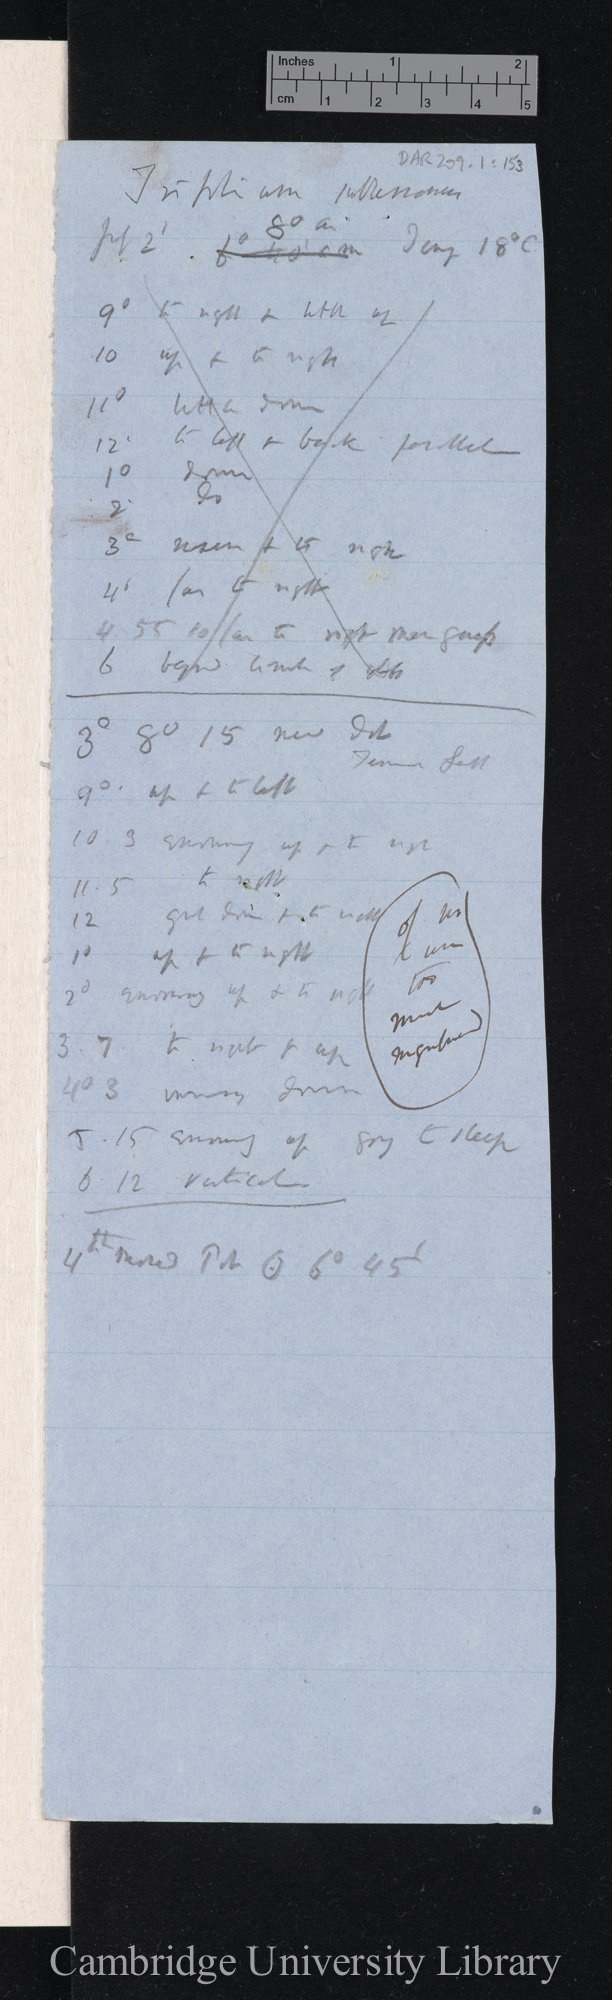 Inches 1 2
cm 1 2 3 4 5
DAR 209.1:153
Trifolium subterraneum
July 2d 8° am
6° am Temp 18°C
9° to right & little up
10 up & to right
11° little down
12° to left & back parallel
1° down
2° Do
3° risen & to right
4° far to right
4 55 so far to right
6 beyond limit of
3d 8° 15 new Dot
9° up & to left
10 3 growing up & to right
11.5 to right
12 great down & to right
1° up & to right
2° up & to right
3.7 to right & up
4° 3 down
5.15 up going to sleep
6 12 vertical
of no
use
too
much
magnified
4th moved Pot @ 6° 45'
Cambridge University Library